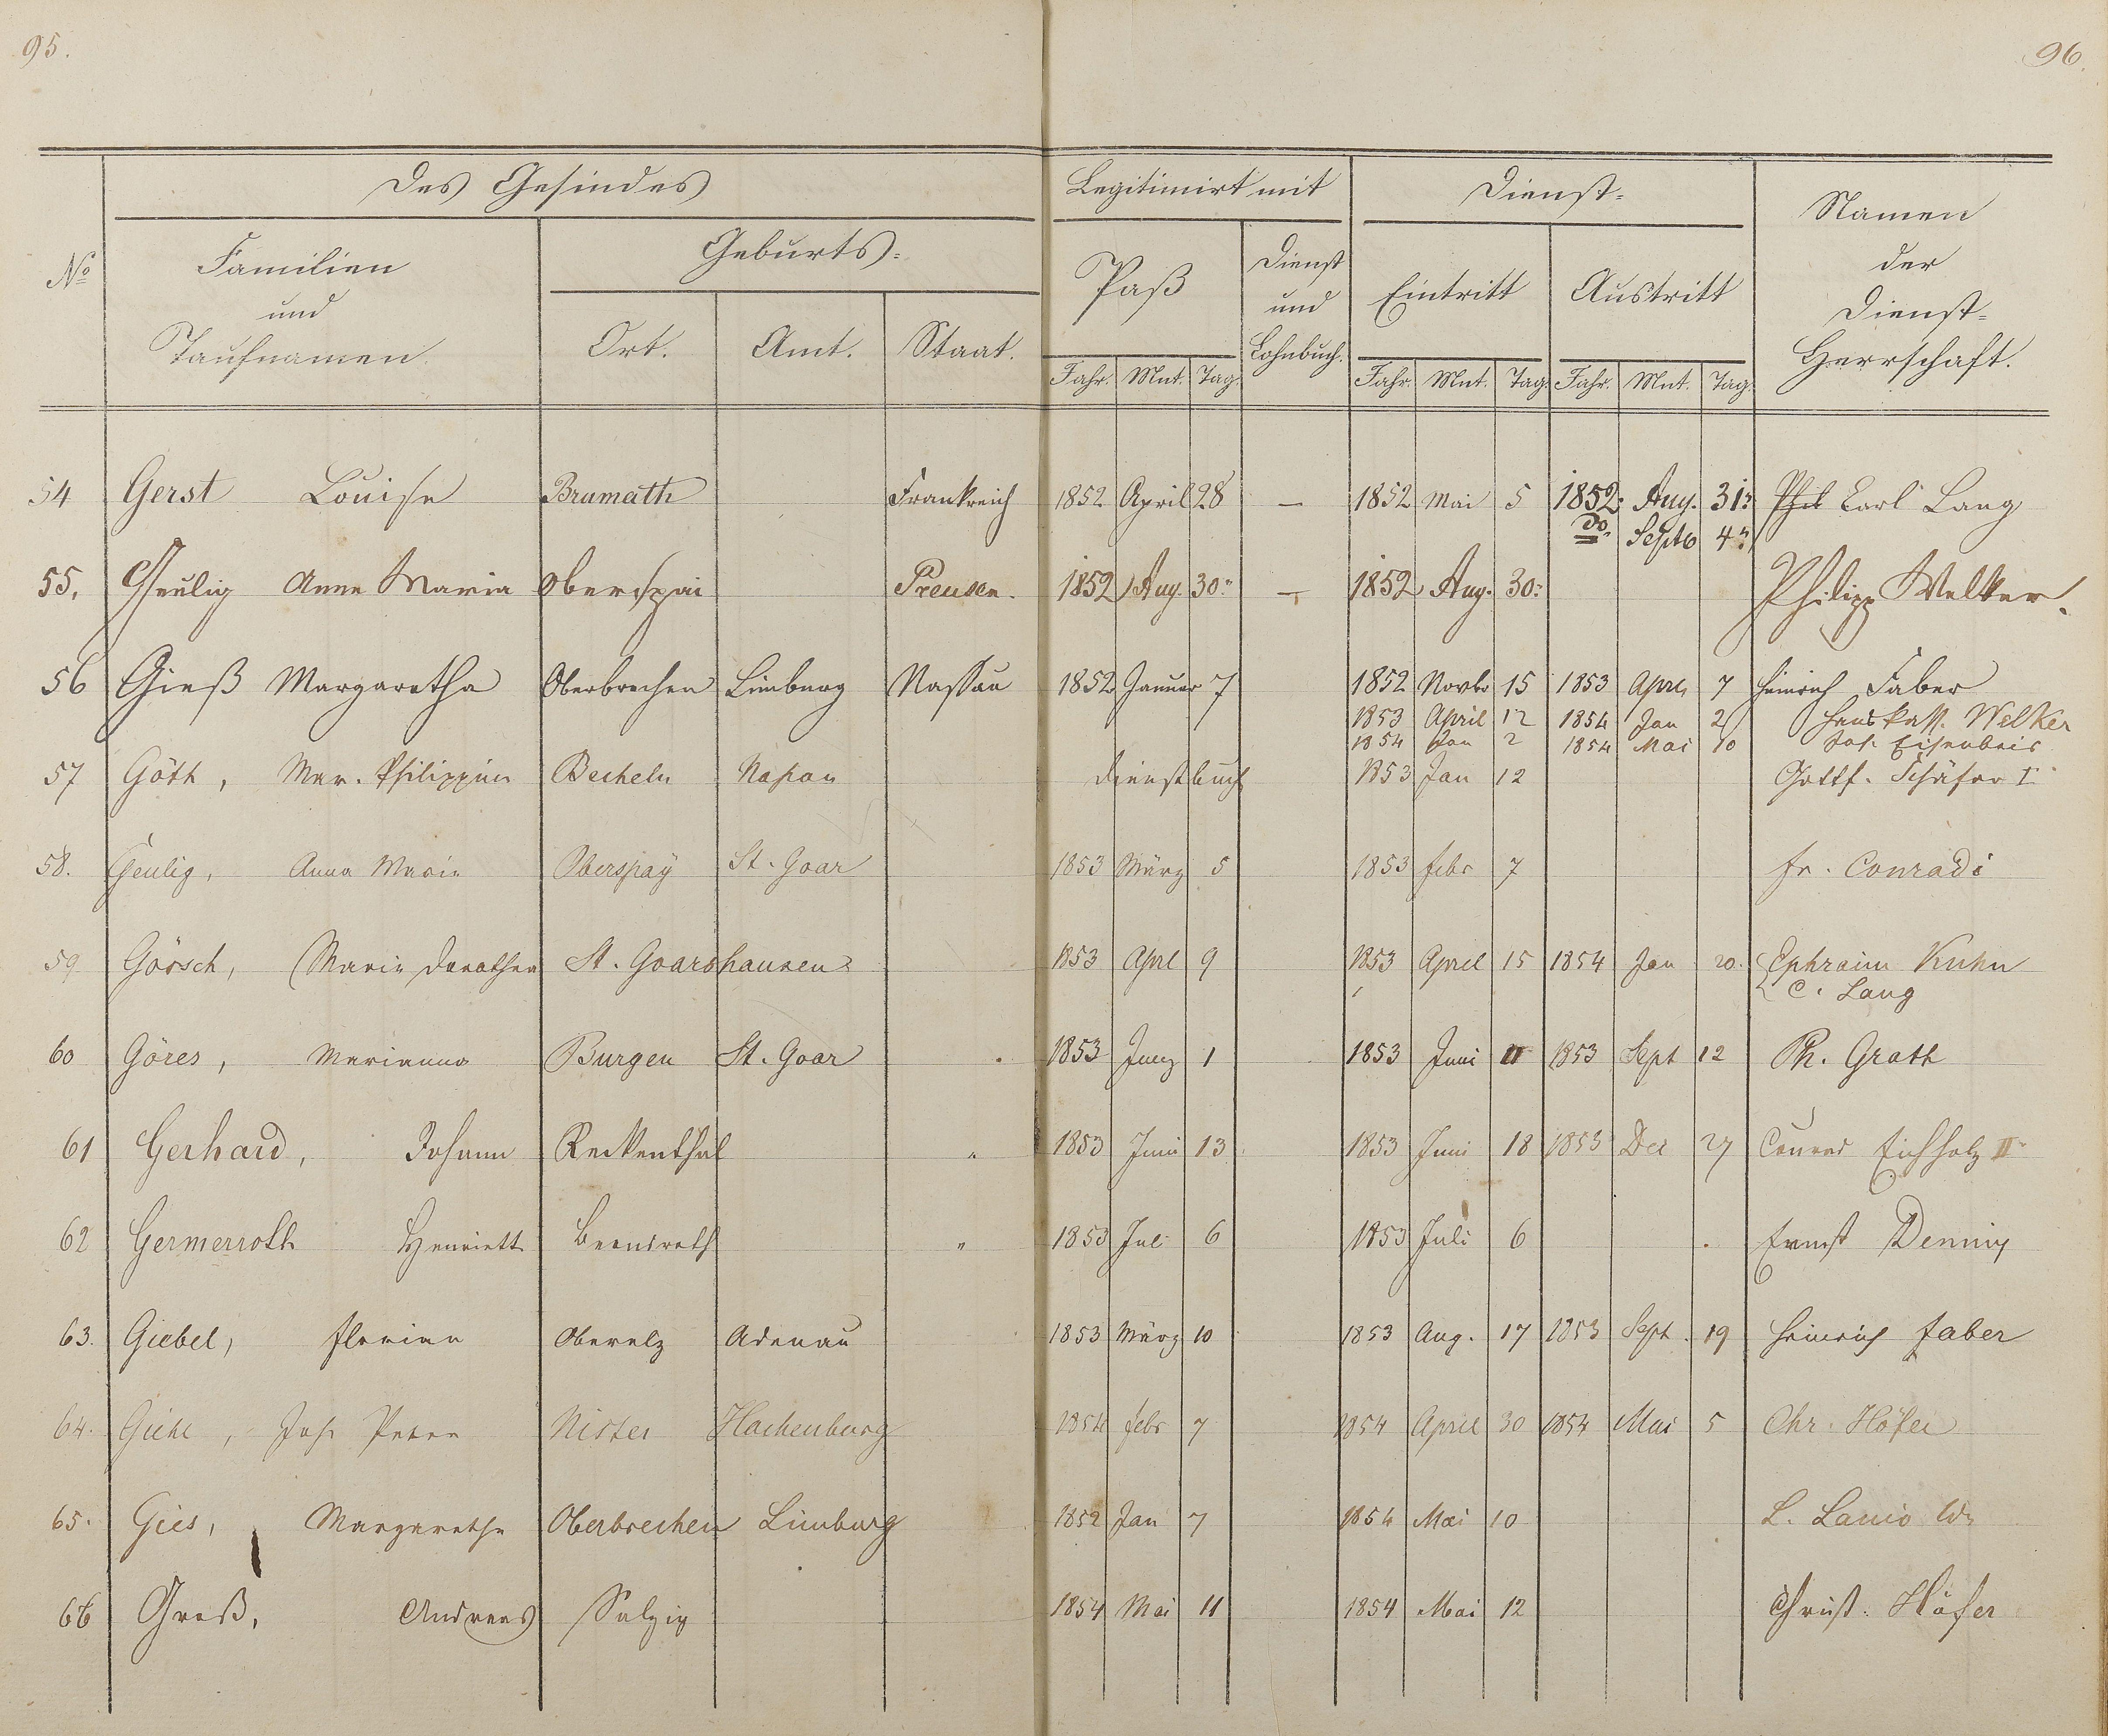 95.
96.
Des Gesindes
Legitimirt mit
Dienst-
Namen der Dienst-Herrschaft.
No
Familien und Taufnamen.
Geburts-
Paß
Dienst und Lohnbuch.
Eintritt
Austritt
Ort.
Amt.
Staat.
Jahr. Mnt. Tag.
Jahr. Mnt. Tag. Jahr. Mnt. Tag.
54 Gerst Louise Brumath Frankreich 1852 April 28 — 1852 Mai 5 1852 Aug. 31. Carl Lang
do Septb 4.
55. Geulig Anna Maria Oberspai Preusen. 1852 Aug. 30. — 1852 Aug. 30. Philipp Welker.
56 Gieß Margaretha Oberbrechen Limburg Nassau 1852 Januar 7 1852 Novbr 15 1853 April 7 Heinrich Faber
1853 April 12 1854 Jan 2 Welker
1854 Jan 2 1854 Mai 10 Joh. Eisenbeis
57 Göth, Mar. Philippine Becheln Naßau Dienstbuch 1853 Jan 12 Gottf. Schäfer I
58. Geulig, Anna Maria Oberspay St. Goar 1853 März 5 1853 febr 7 fr. Conradi
59 Görsch, Maria Dorothea St. Goarshausen 1853 April 9 1853 April 15 1854 Jan 20. Ephraim Kuhn
C. Lang
60 Göres, Marianna Burgen St. Goar 1853 1 1853 Juni 11 1853 Sept 12 Ph. Groth
61 Gerhard, Johann Reckenthal " 1853 Juni 13 1853 Juni 18 1853 Dec 27 Conrad Eichholz II
62 Germerroth Henriette " 1853 Juli 6 1853 Juli 6 Ernst Denninq
63. Giebel, Florian Oberelz Adenau 1853 März 10 1853 Aug. 17 1853 Sept. 19 Heinrich Faber
64. Giehl, Joh Peter Nister Hachenburg 1854 febr 7 1854 April 30 1854 Mai 5 Chr. Höfer
65. Gies, Margarethe Oberbrechen Limburg 1852 Jan 7 1854 Mai 10 L. Lanio
66 Groß, Andreas Salzig 1854 Mai 11 1854 Mai 12 Christ. Höfer